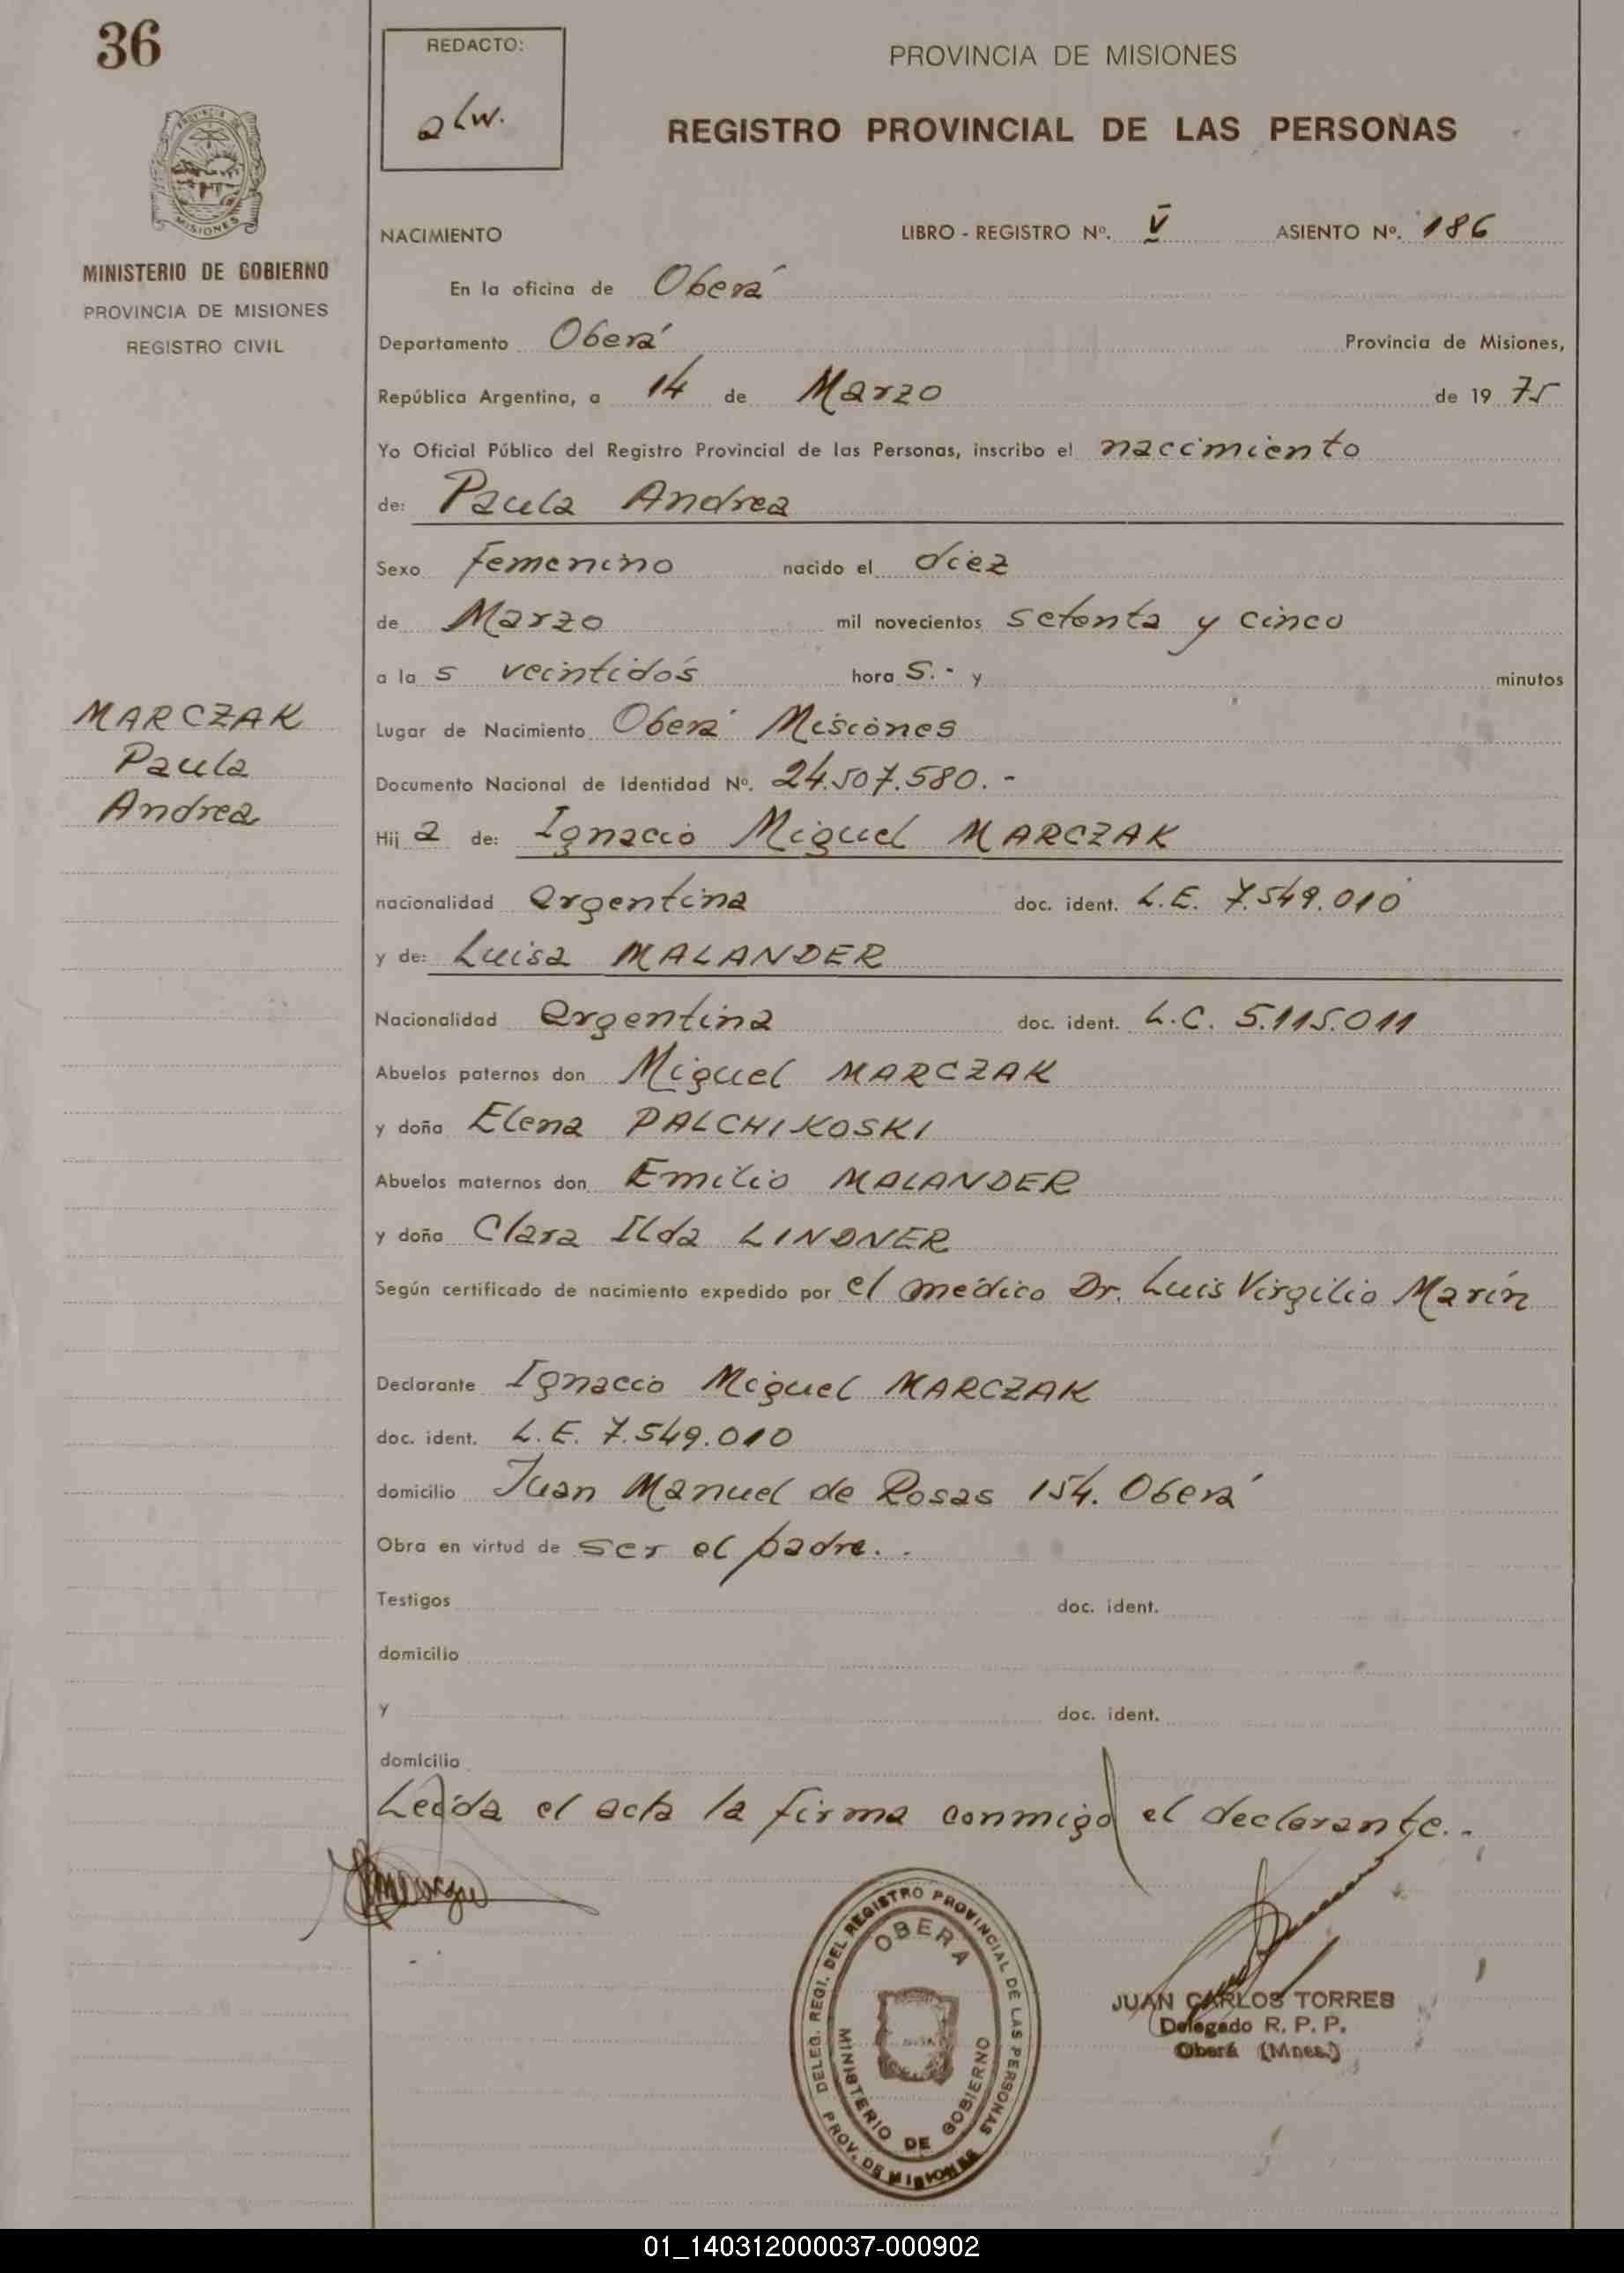 36
REDACTO:
PROVINCIA DE MISIONES
REGISTRO PROVINCIAL DE LAS PERSONAS
PROVINCIA DE
MISIONES
MINISTERIO DE GOBIERNO
PROVINCIA DE MISIONES
REGISTRO CIVIL
NACIMIENTO LIBRO - REGISTRO Nº. V ASIENTO Nº. 186
En la oficina de Oberá
Departamento Oberá Provincia de Misiones,
República Argentina, a 14 de Marzo de 19 75
Yo Oficial Público del Registro Provincial de las Personas, inscribo el nacimiento
de: Paula Andrea
Sexo femenino nacido el diez
de Marzo mil novecientos setenta y cinco
a la s veintidós hora s.- y minutos
MARCZAK
Paula
Andrea
Lugar de Nacimiento Oberá Misiones
Documento Nacional de Identidad Nº. 24.507.580.-
Hij a de: Ignacio Miguel MARCZAK
nacionalidad argentina doc. ident. L.E. 7.549.010
y de: Luisa MALANDER
Nacionalidad argentina doc. ident. L.C. 5.115.011
Abuelos paternos don Miguel MARCZAK
y doña Elena PALCHIKOSKI
Abuelos maternos don Emilio MALANDER
y doña Clara Ilda LINDNER
Según certificado de nacimiento expedido por el médico Dr. Luis Virgilio Marín
Declarante Ignacio Miguel MARCZAK
doc. ident. L.E. 7.549.010
domicilio Juan Manuel de Rosas 154. Oberá
Obra en virtud de ser el padre..
Testigos doc. ident.
domicilio
y doc. ident.
domicilio
Leída el acta la firma conmigo el declarante..
DELEG. REGI. DEL REGISTRO PROVINCIAL DE LAS PERSONAS
PROV. DE MISIONES
OBERA
MINISTERIO DE GOBIERNO
JUAN CARLOS TORRES
Delegado R. P. P.
Oberá (Mnes.)
01_140312000037-000902